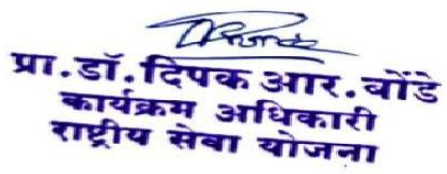 प्रा.डॉ.दिपक आर.बोंडे
कार्यक्रम अधिकारी
राष्ट्रीय सेवा योजना